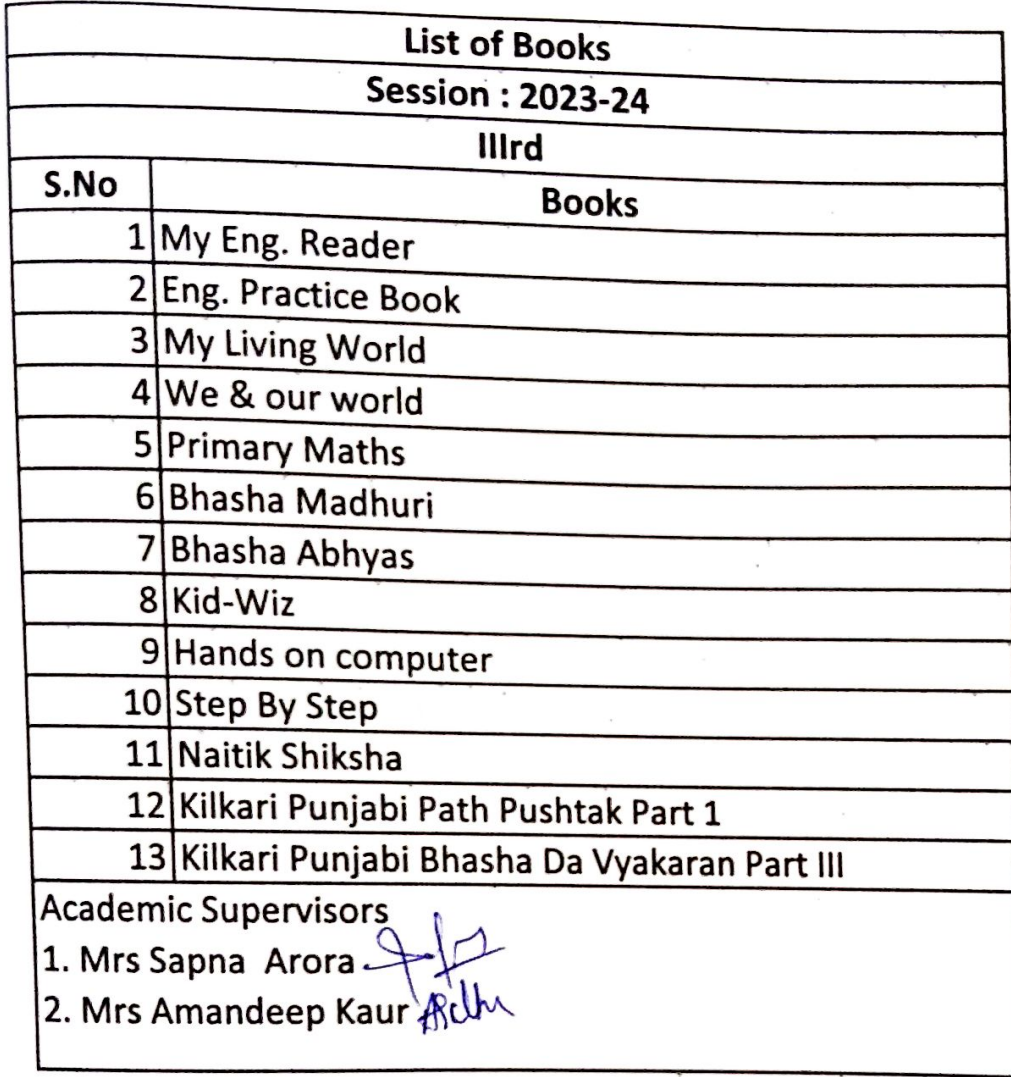 List of Books
Session : 2023-24
IIIrd
S.No Books
1 My Eng. Reader
2 Eng. Practice Book
3 My Living World
4 We & our world
5 Primary Maths
6 Bhasha Madhuri
7 Bhasha Abhyas
8 Kid-Wiz
9 Hands on computer
10 Step By Step
11 Naitik Shiksha
12 Kilkari Punjabi Path Pushtak Part 1
13 Kilkari Punjabi Bhasha Da Vyakaran Part III
Academic Supervisors
1. Mrs Sapna Arora
2. Mrs Amandeep Kaur